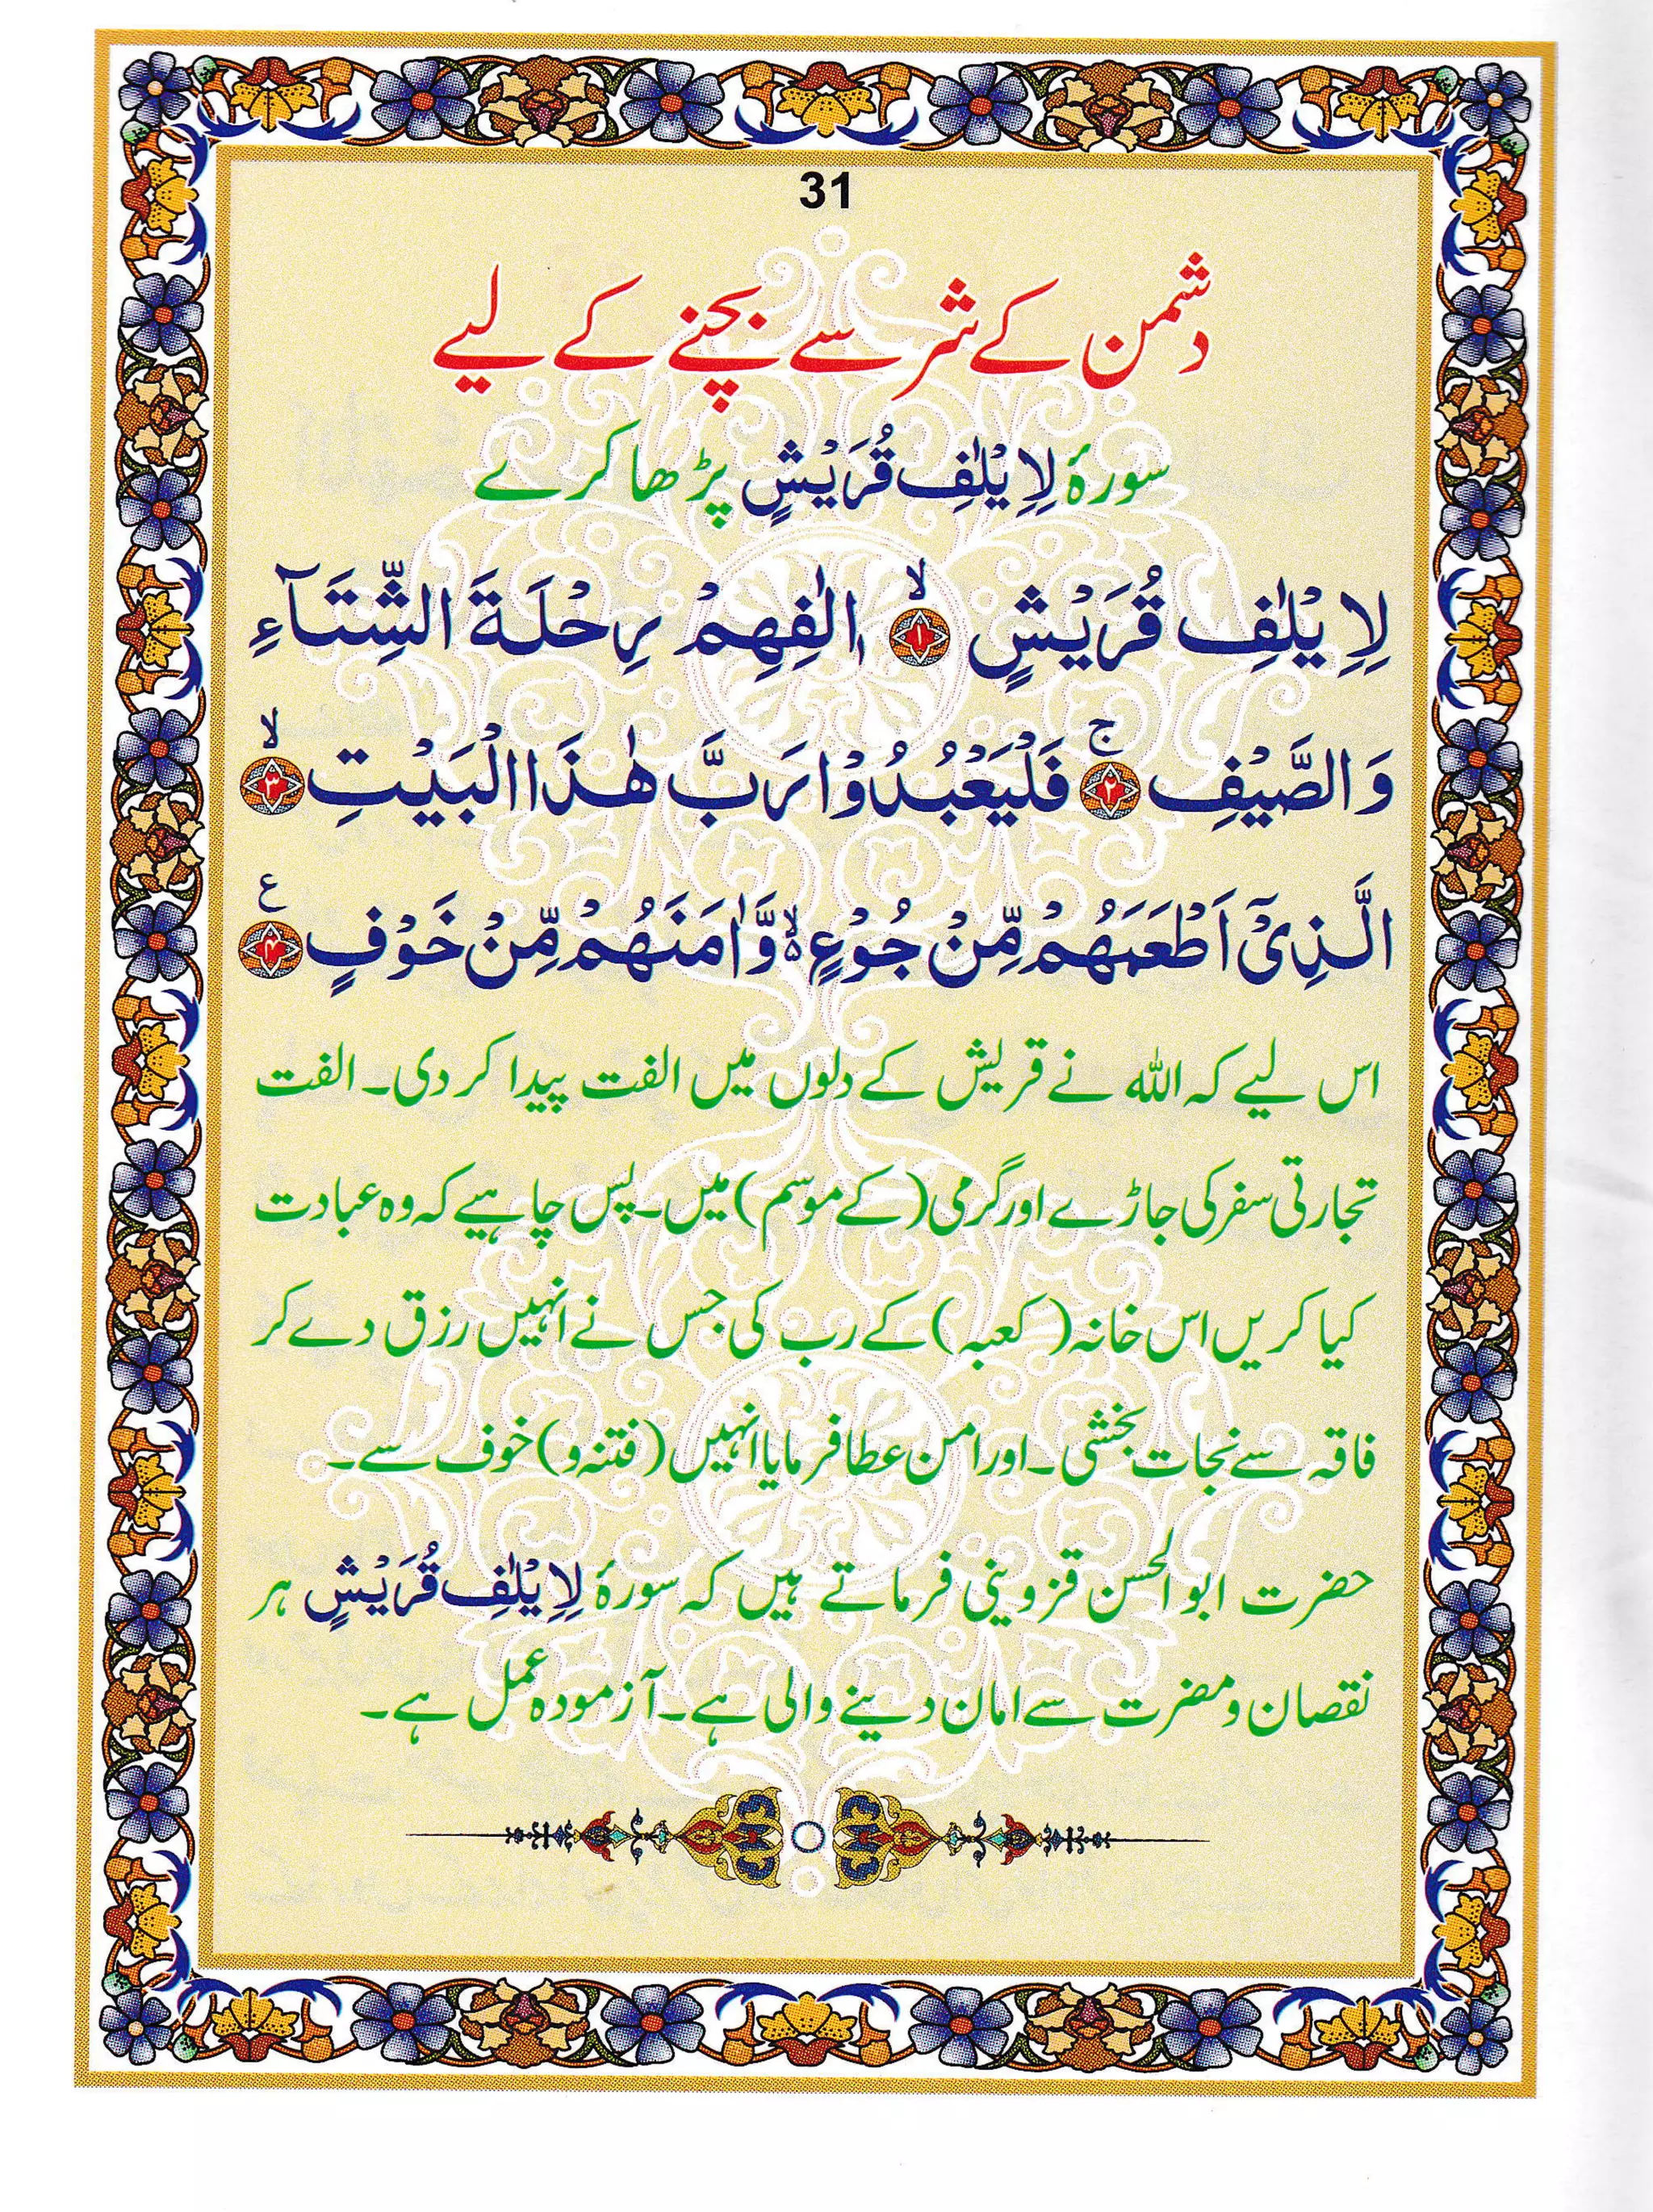 31
دشمن کے شر سے بچنے کے لیے
سورۂ لِاِیْلٰفِ قُرَیْشٍ پڑھا کرے
لِاِیْلٰفِ قُرَیْشٍ ۙ﴿۱﴾ اٖلٰفِهِمْ رِحْلَةَ الشِّتَآءِ
وَالصَّیْفِ ۚ﴿۲﴾ فَلْیَعْبُدُوْا رَبَّ هٰذَا الْبَیْتِ ۙ﴿۳﴾
الَّذِیْۤ اَطْعَمَهُمْ مِّنْ جُوْعٍ ۙ۬ وَّاٰمَنَهُمْ مِّنْ خَوْفٍ ﴿۴﴾ ع
اس لیے کہ اللہ نے قریش کے دلوں میں الفت پیدا کر دی۔ الفت
تجارتی سفر کی جاڑے اور گرمی (کے موسم) میں۔ پس چاہیے کہ وہ عبادت
کیا کریں اس خانہ (کعبہ) کے رب کی جس نے انہیں رزق دے کر
فاقہ سے نجات بخشی۔ اور امن عطا فرمایا انہیں (فتنہ و) خوف سے۔
حضرت ابوالحسن قزوینی فرماتے ہیں کہ سورۂ لِاِیْلٰفِ قُرَیْشٍ ہر
نقصان و مضرت سے امان دینے والی ہے۔ آزمودہ عمل ہے۔